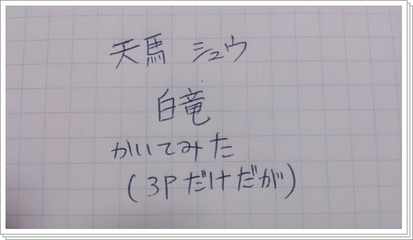 天馬 シュウ
白竜
かいてみた
(3Pだけだが)